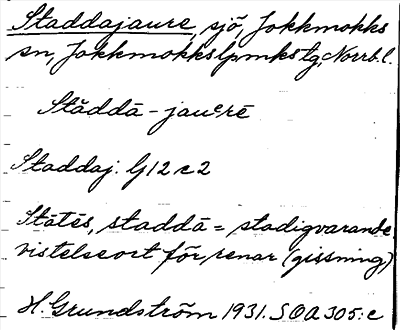 Staddajaure, sjö, Jokkmokks
sn, Jokkmokkslpmks tg, Norrb. l.
Stăddā-jauᵉrē
Staddaj. G12 c 2
Stātēs, staddā = stadigvarande
vistelseort för renar (gissning)
H. Grundström 1931. SOA 305:c